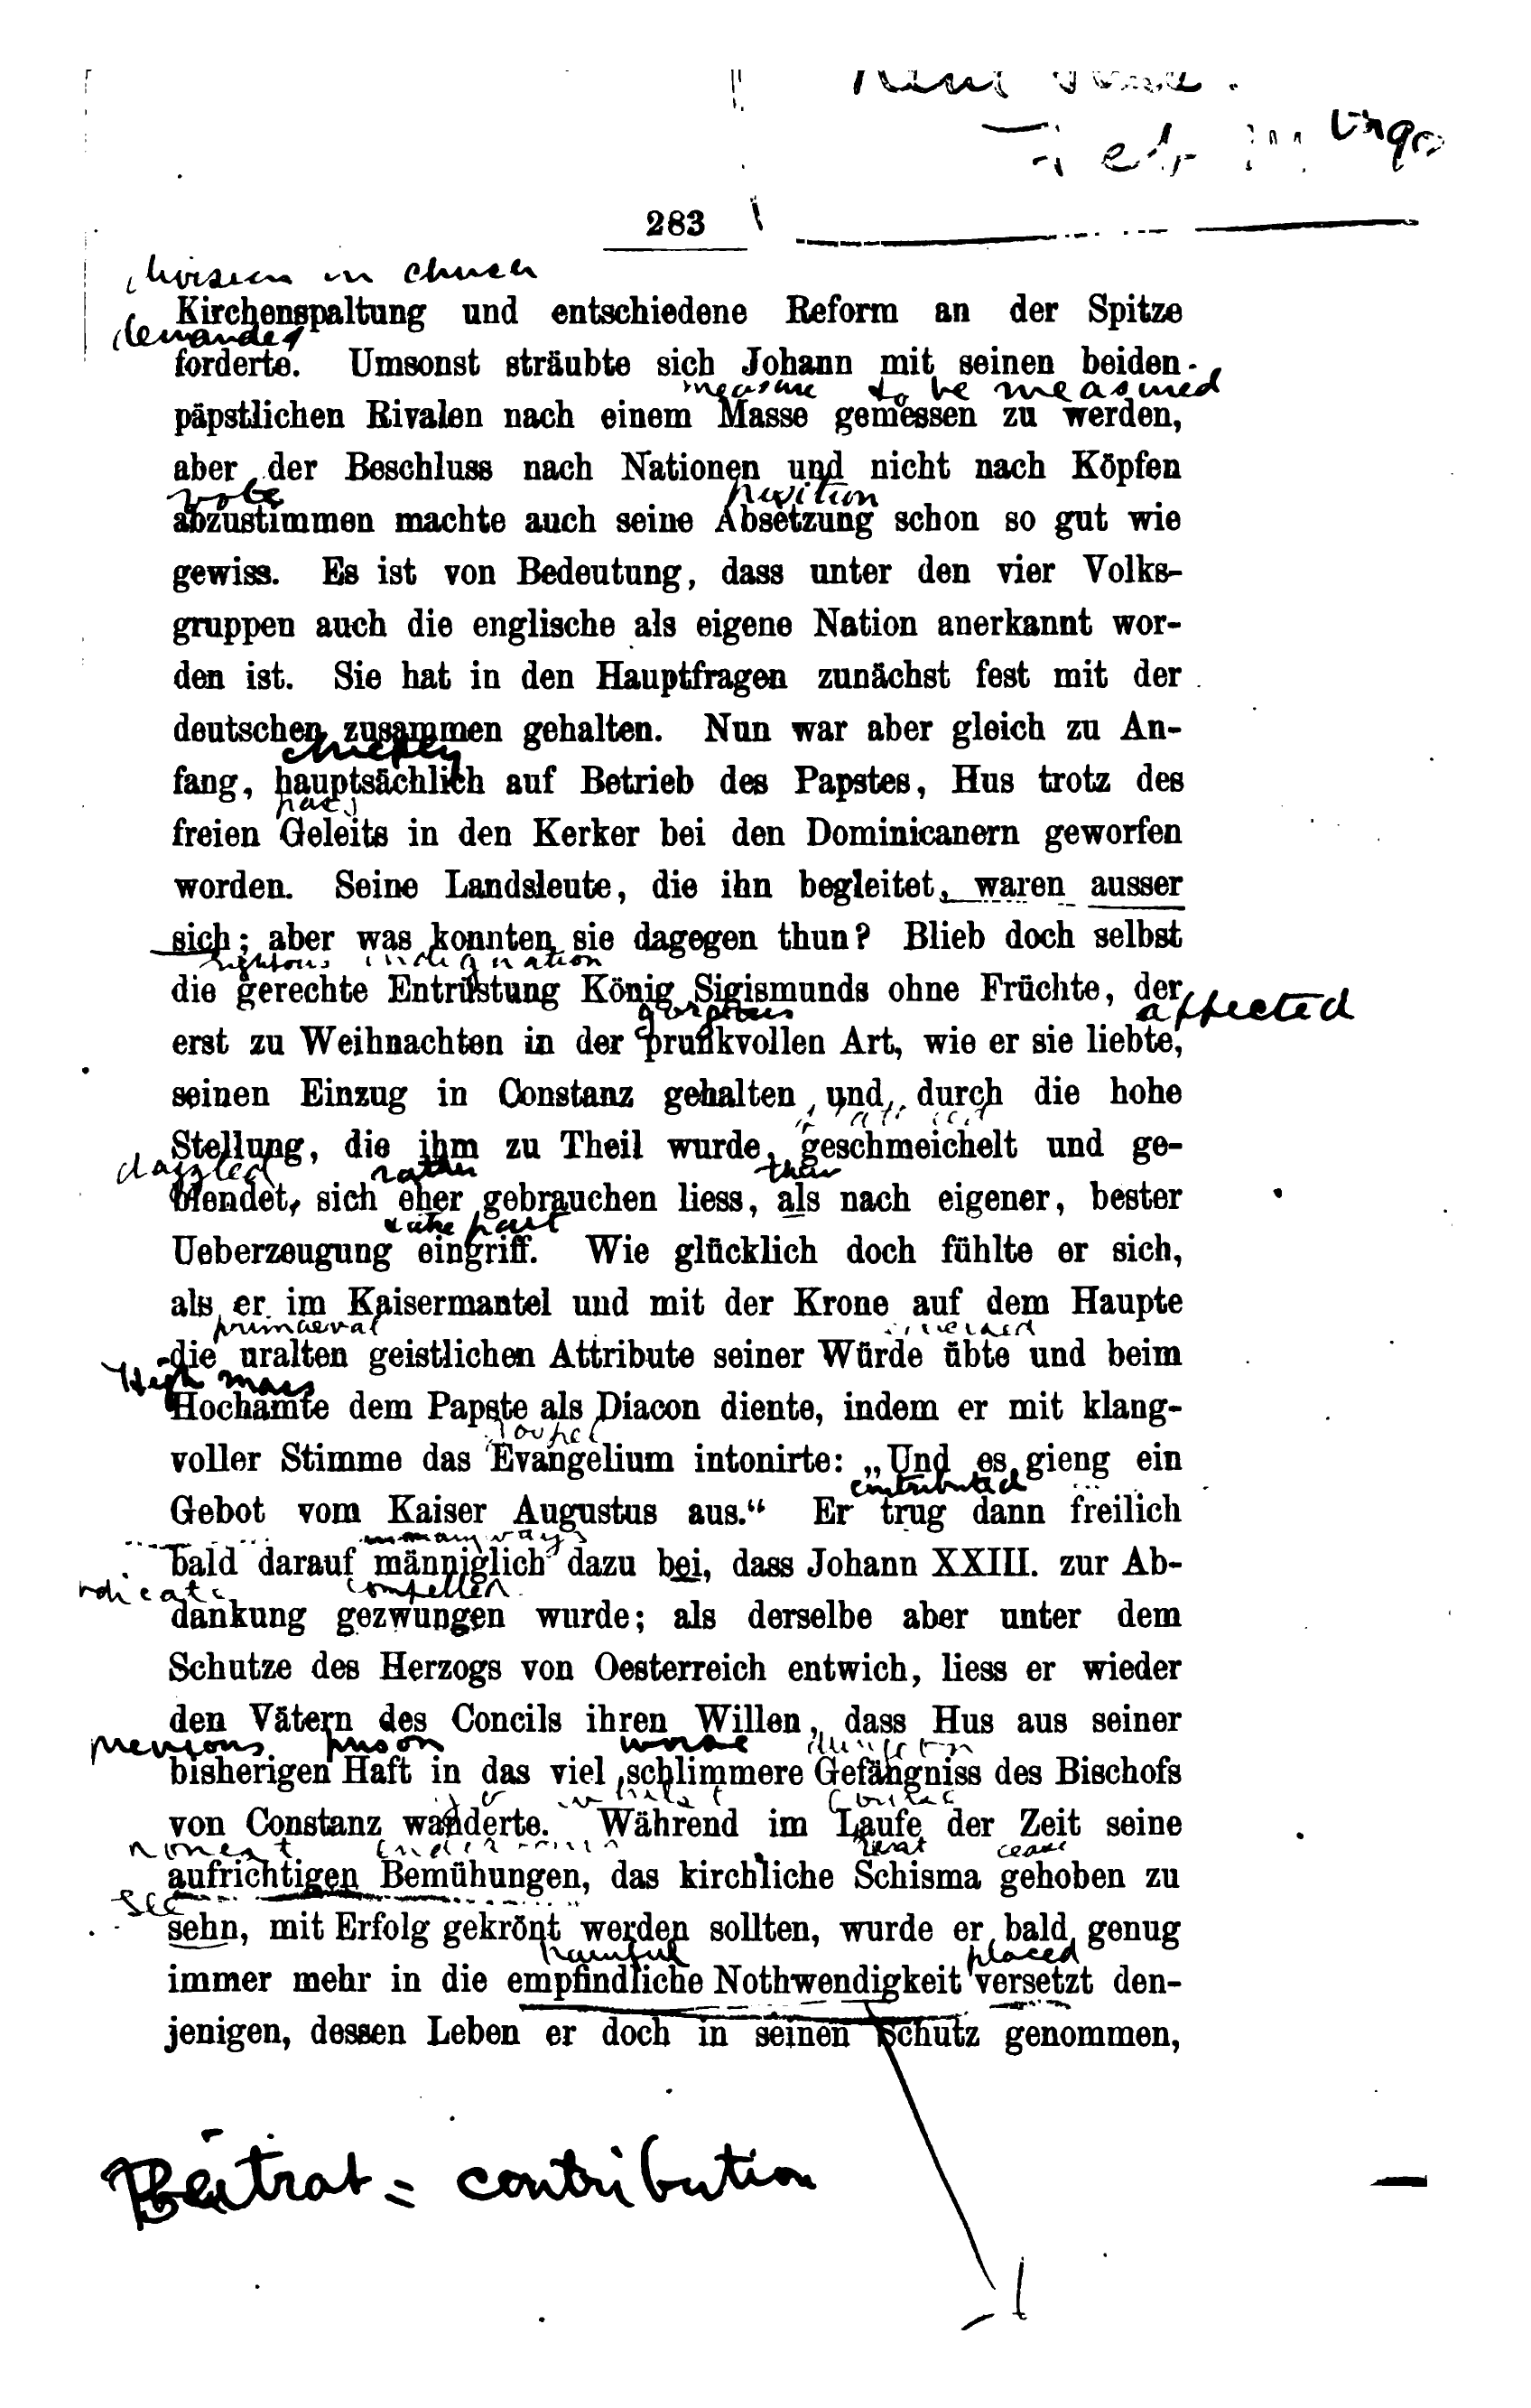 283
division in church
Kirchenspaltung und entschiedene Reform an der Spitze
demanded
forderte. Umsonst sträubte sich Johann mit seinen beiden
measure to be measured
päpstlichen Rivalen nach einem Masse gemessen zu werden,
aber der Beschluss nach Nationen und nicht nach Köpfen
vote
abzustimmen machte auch seine Absetzung schon so gut wie
gewiss. Es ist von Bedeutung, dass unter den vier Volks-
gruppen auch die englische als eigene Nation anerkannt wor-
den ist. Sie hat in den Hauptfragen zunächst fest mit der
deutschen zusammen gehalten. Nun war aber gleich zu An-
chiefly
fang, hauptsächlich auf Betrieb des Papstes, Hus trotz des
freien Geleits in den Kerker bei den Dominicanern geworfen
worden. Seine Landsleute, die ihn begleitet, waren ausser
sich; aber was konnten sie dagegen thun? Blieb doch selbst
righteous indignation
die gerechte Entrüstung König Sigismunds ohne Früchte, der
gorgeous affected
erst zu Weihnachten in der prunkvollen Art, wie er sie liebte,
seinen Einzug in Constanz gehalten und durch die hohe
Stellung, die ihm zu Theil wurde, geschmeichelt und ge-
dazzled rather than
blendet, sich eher gebrauchen liess, als nach eigener, bester
take part
Ueberzeugung eingriff. Wie glücklich doch fühlte er sich,
als er im Kaisermantel und mit der Krone auf dem Haupte
primaeval
die uralten geistlichen Attribute seiner Würde übte und beim
High mass
Hochamte dem Papste als Diacon diente, indem er mit klang-
voller Stimme das Evangelium intonirte: „Und es gieng ein
contributed
Gebot vom Kaiser Augustus aus.“ Er trug dann freilich
in many ways
bald darauf männiglich dazu bei, dass Johann XXIII. zur Ab-
compelled
dankung gezwungen wurde; als derselbe aber unter dem
Schutze des Herzogs von Oesterreich entwich, liess er wieder
den Vätern des Concils ihren Willen, dass Hus aus seiner
previous prison worse dungeon
bisherigen Haft in das viel schlimmere Gefängniss des Bischofs
whilst course
von Constanz wanderte. Während im Laufe der Zeit seine
honest cease
aufrichtigen Bemühungen, das kirchliche Schisma gehoben zu
see
sehn, mit Erfolg gekrönt werden sollten, wurde er bald genug
painful placed
immer mehr in die empfindliche Nothwendigkeit versetzt den-
jenigen, dessen Leben er doch in seinen Schutz genommen,
Beitrat = contribution